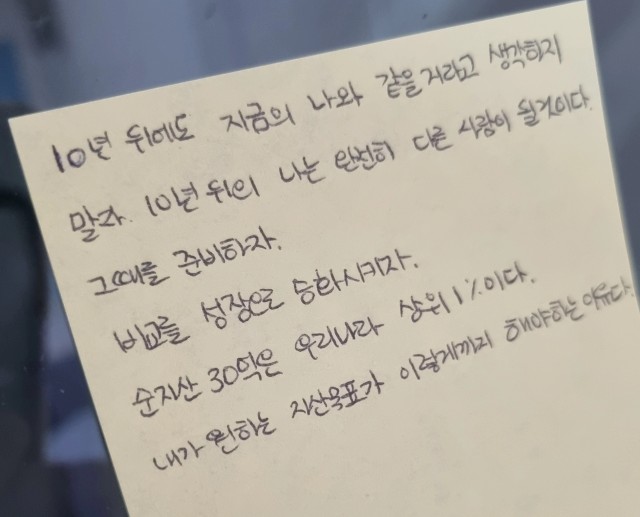 10년 뒤에도 지금의 나와 같을거라고 생각하지
말라. 10년 뒤의 나는 완전히 다른 사람이 될것이다.
그때를 준비하자.
비교를 성장으로 승화시키자.
순자산 30억은 우리나라 상위 1%이다.
내가 원하는 자산목표가 이렇게까지 해야하는 이유다.